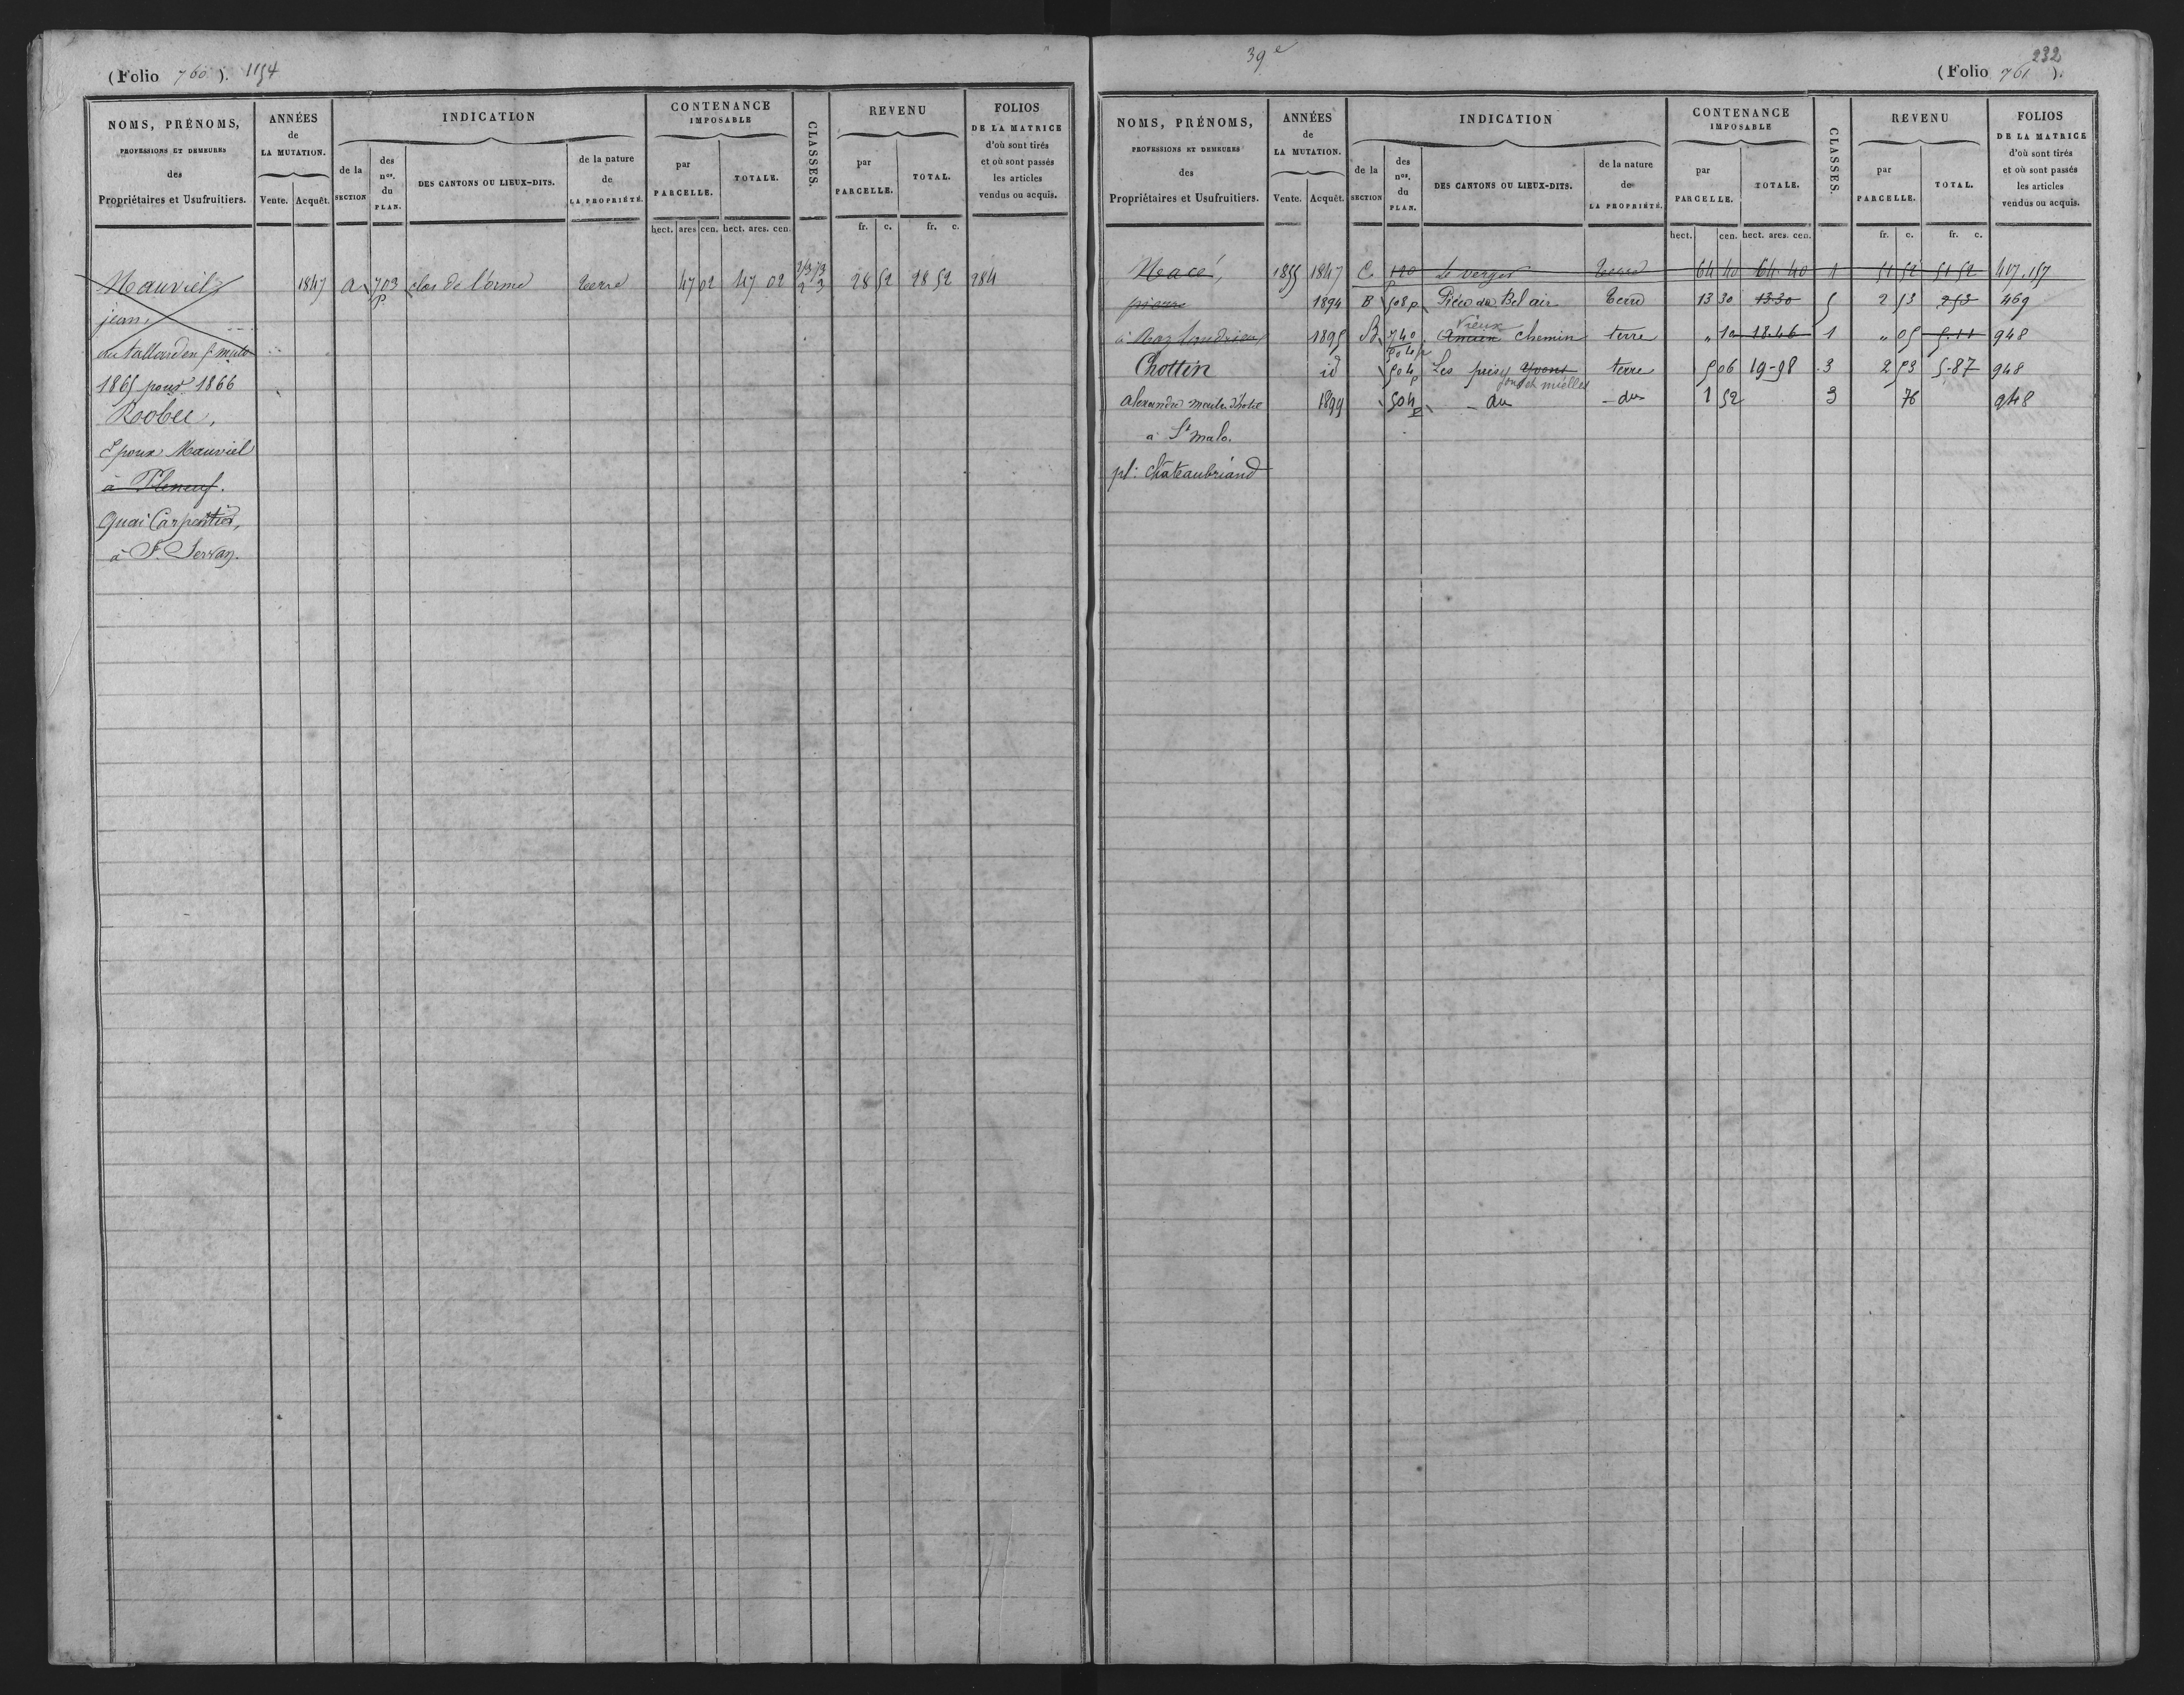 (Folio 760). 1154
NOMS, PRÉNOMS,
PROFESSIONS ET DEMEURES
des
Propriétaires et Usufruitiers.
ANNÉES
de
LA MUTATION.
Vente. Acquêt.
INDICATION
de la
SECTION
des
nos.
du
PLAN.
DES CANTONS OU LIEUX-DITS.
de la nature
de
LA PROPRIÉTÉ.
CONTENANCE
IMPOSABLE
par
PARCELLE.
TOTALE.
hect. ares cen. hect. ares. cen.
CLASSES.
REVENU
par
PARCELLE.
TOTAL.
fr. c. fr. c.
FOLIOS
DE LA MATRICE
d'où sont tirés
et où sont passés
les articles
vendus ou acquis.
Mauviel 1847 A 703 P. clos de l'orme terre 47 02 47 02 2 3 28 52 28 52 284
jean,
du tallard en St malo
1865 pour 1866
Epoux Mauviel
à Pleneuf.
Quai Carpentier,
à St. Servan.
39e
232
(Folio 761).
NOMS, PRÉNOMS,
PROFESSIONS ET DEMEURES
des
Propriétaires et Usufruitiers.
ANNÉES
de
LA MUTATION.
Vente. Acquêt.
INDICATION
de la
SECTION
des
nos.
du
PLAN.
DES CANTONS OU LIEUX-DITS.
de la nature
de
LA PROPRIÉTÉ.
CONTENANCE
IMPOSABLE
par
PARCELLE.
TOTALE.
hect. cen. hect. ares. cen.
CLASSES.
REVENU
par
PARCELLE.
TOTAL.
fr. c. fr. c.
FOLIOS
DE LA MATRICE
d'où sont tirés
et où sont passés
les articles
vendus ou acquis.
Macé, 1855 1847 C. 120 P Le verger terre 64 40 64 40 1 51 52 51 52 417. 157
pierre 1894 B 508 p. Pièce de Bel air terre 13 30 13 30 5 2 53 2 53 469
à 1895 B. 740 504 p Ancien Vieux chemin terre " 10 18.46 1 " 05 5.11 948
Chottin id 504 p Les prisy Yvons terre 5 06 19-98 3 2 53 5-87 948
et mielles
Alexandre maître d'hotel 1899 504 p - du - du 1 52 3 76 948
à St malo.
pl: Châteaubriand